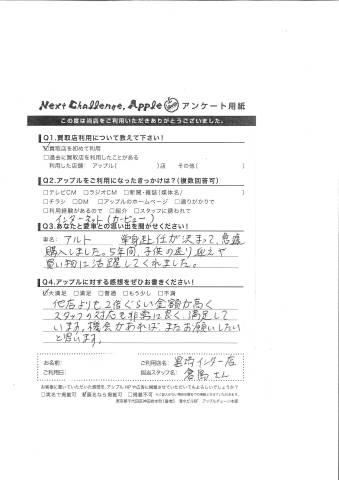 Next Challenge, Apple アンケート用紙
この度は当店をご利用いただきありがとうございました。
Q1.買取店利用について教えて下さい!
☑買取店を初めて利用
□過去に買取店を利用したことがある
利用した店舗: アップル( )店 その他( )
Q2.アップルをご利用になったきっかけは?(複数回答可)
□テレビCM □ラジオCM □新聞・雑誌(媒体名/ )
□チラシ □DM □アップルのホームページ □通りがかりで
□利用経験があるので □紹介 □スタッフに誘われて
インターネット(カービュー)
Q3.あなたと愛車との思い出を聞かせください!
車名: アルト 単身赴任が決まって、急遽
購入しました。5年間、子供の送り迎えや
買い物に活躍してくれました。
Q4.アップルに対する感想をぜひお書きください!
☑大満足 □満足 □普通 □もう少し □不満
他店よりも2倍ぐらい金額が高く
スタッフの対応も非常に良く、満足して
います。機会があれば、またお願いしたい
と思います。
お名前: ご利用店名: 黒埼インター店
ご利用日: 担当スタッフ名: 倉島さん
お客様に書いていただいた感想を、アップルHPや広告に掲載させていただいてもよろしいでしょうか?
□実名で掲載可 ☑匿名なら掲載可 □掲載不可